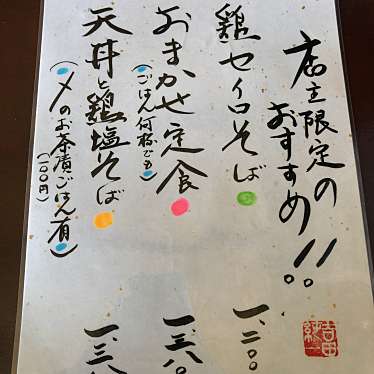 店主限定の
おすすめ!!。
鶏セイロそば
一、二〇〇
おまかせ定食
(ごはん何杯でも)
一、八〇
天丼と鶏塩そば
一、八
(〆のお茶漬ごはん有)
(100円)
吉田